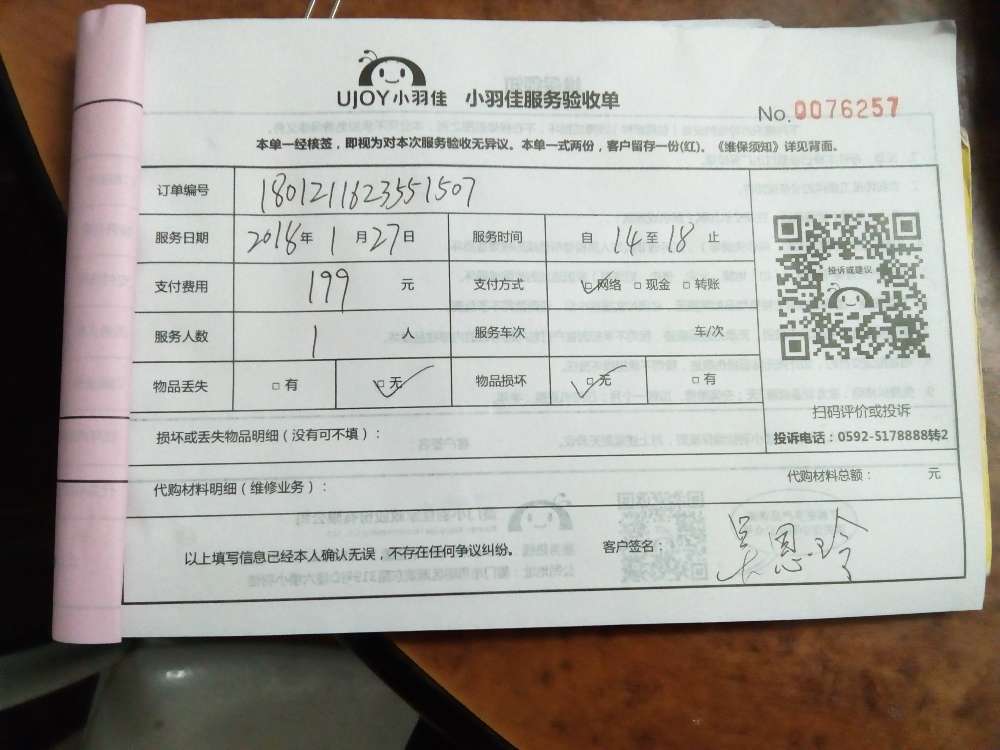 UJOY小羽佳 小羽佳服务验收单
No.0076257
本单一经核签，即视为对本次服务验收无异议。本单一式两份，客户留存一份(红)。《维保须知》详见背面。
订单编号 1801211623551507
服务日期 2018年1月27日 服务时间 自14至18止
投诉或建议
支付费用 199元 支付方式 □网络 □现金 □转账
服务人数 1人 服务车次 车/次
物品丢失 □有 □无 物品损坏 □无 □有
扫码评价或投诉
损坏或丢失物品明细（没有可不填）：
投诉电话：0592-5178888转2
代购材料明细（维修业务）： 代购材料总额： 元
以上填写信息已经本人确认无误，不存在任何争议纠纷。 客户签名： 吴恩玲